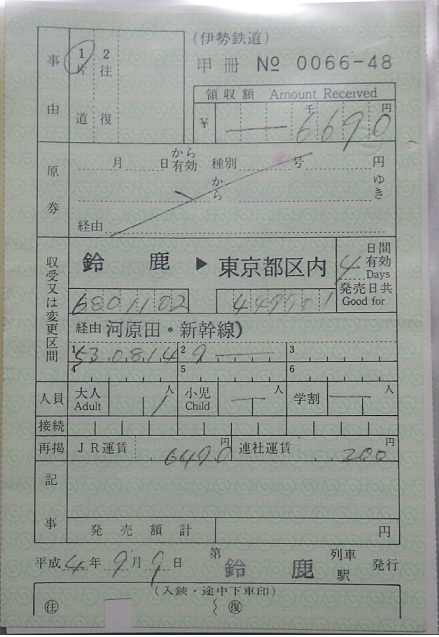 (伊勢鉄道)
甲冊 № 0066-48
事由 1片道 2往復
領収額 Amount Received
¥ 6690 千 円
原券 月 日から有効 種別 号 円
から ゆき
経由
収受又は変更区間
鈴鹿 ▶ 東京都区内
4日間有効 Days
発売日共 Good for
6801102
経由 河原田・新幹線)
1 530814 2 9 3
4 5 6
人員 大人 Adult 1人 小児 Child 人 学割 人
接続
再掲 JR運賃 6490円 連社運賃 200円
記事
発売額計 円
平成4年9月9日 第 鈴鹿 列車駅 発行
(入鋏・途中下車印)
㊟ 〜 ㊡